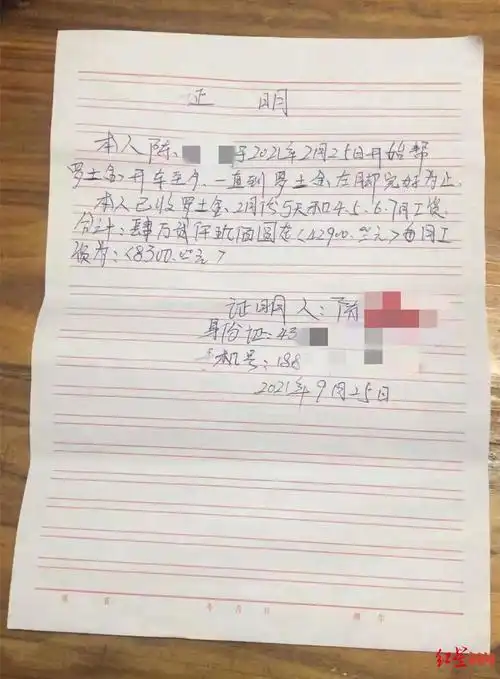 证 明
本人陈 于2021年2月25日开始帮
罗土金开车至今，一直到罗土金左脚完好为止。
本人已收罗土金2月份5天和4.5.6.7月工资
合计：肆万贰仟玖佰圆在<42900.00元>每月工
资为：<8300.00元>
证明人：陈
身份证：43
机号：188
2021年9月25日
年 月 日
红星